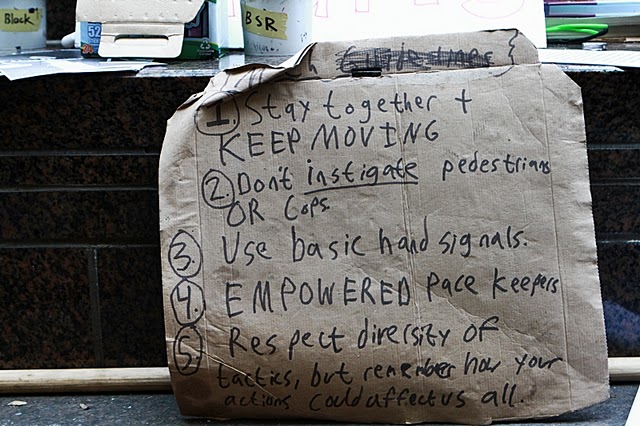 Block
52
BSR
1. Stay together +
KEEP MOVING
2. Don't instigate pedestrians
OR Cops
3. Use basic hand signals.
4. EMPOWERED Pace keepers
5. Respect diversity of
tactics, but remember how your
actions could affect us all.